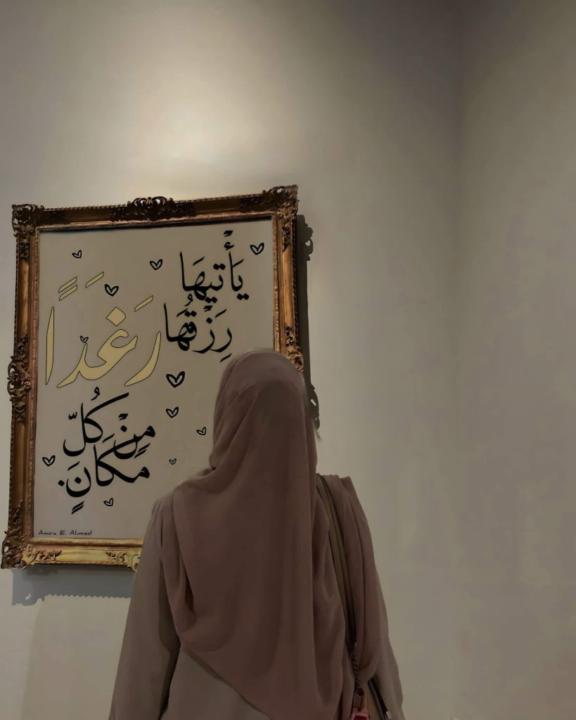 يَأْتيهَا
رِزْقُهَا
رَغَدًا
مِنْ كُلّ
مَكَانٍ.
Amira E. Ahmed